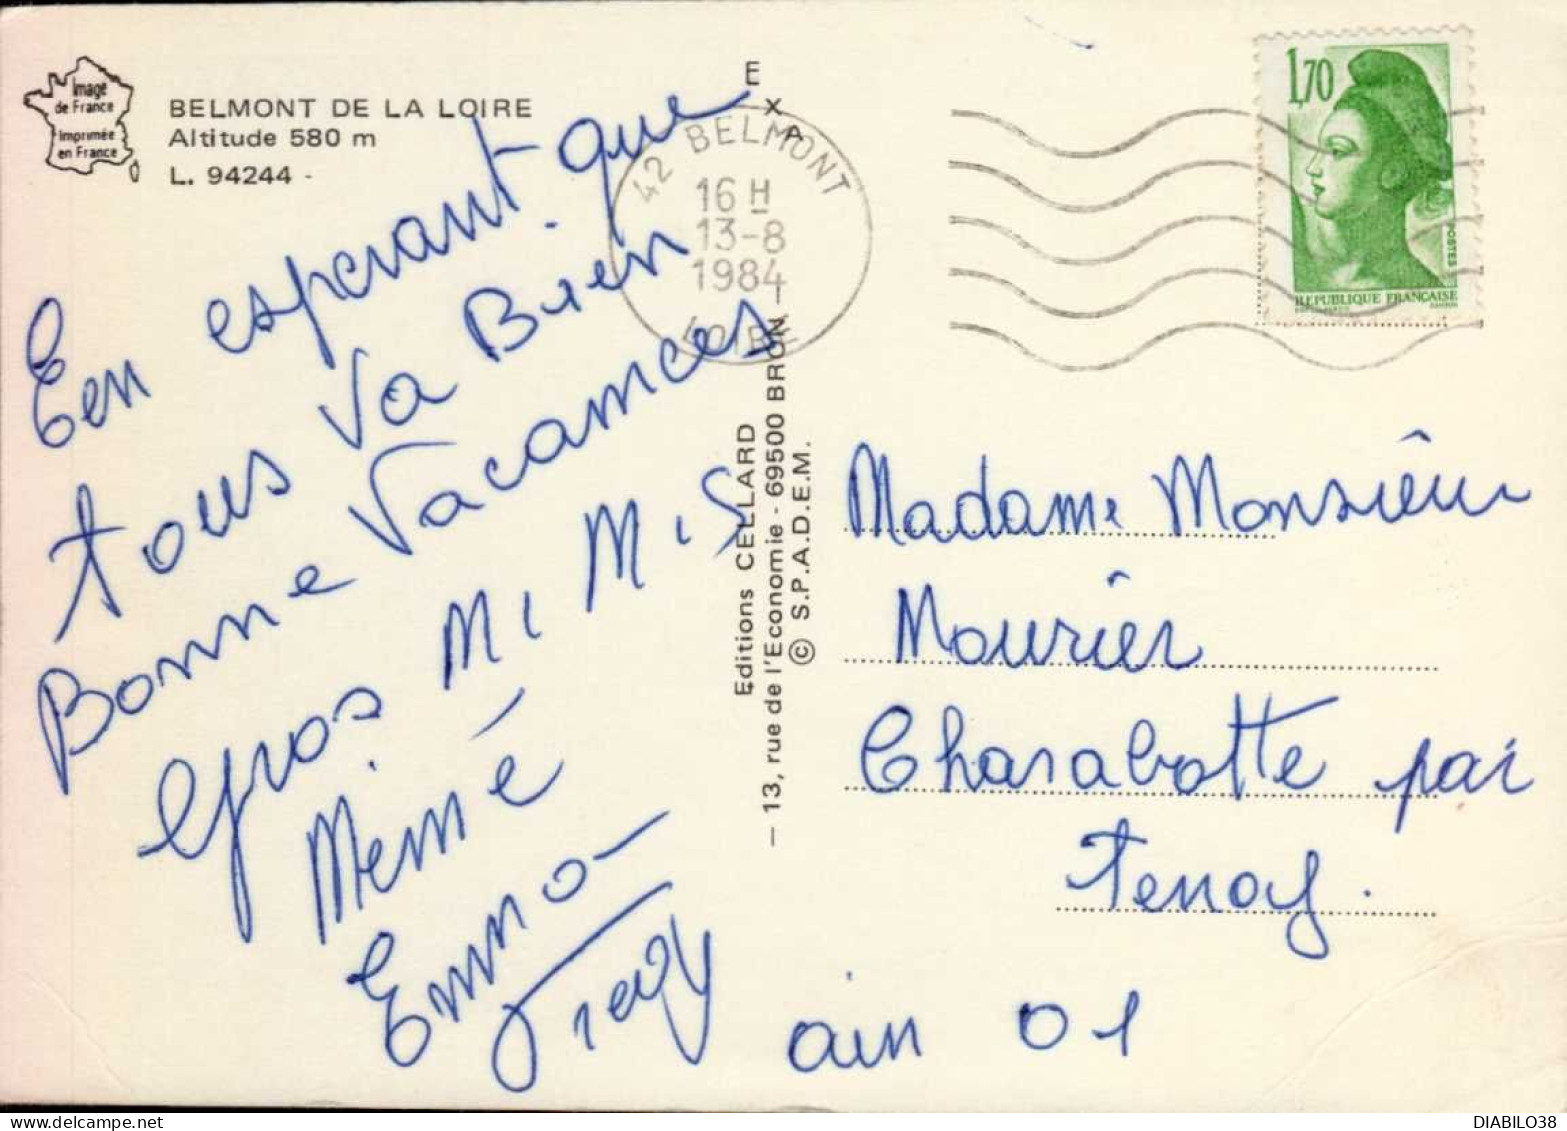 Image
de France
Imprimée
en France
BELMONT DE LA LOIRE
Altitude 580 m
L. 94244 -
Een esperant que
tous Va Bien
Bonne Vacances
Gros Mi Mis
Mémé
Emma
EXA
Editions CELLARD
— 13, rue de l'Economie - 69500 BRON —
© S.P.A.D.E.M.
42 BELMONT
16 H
13-8
1984
LOIRE
1,70
POSTES
REPUBLIQUE FRANÇAISE
Madame Monsieur
Mourier
Charabotte par
Tenay.
ain 01
DIABILO38